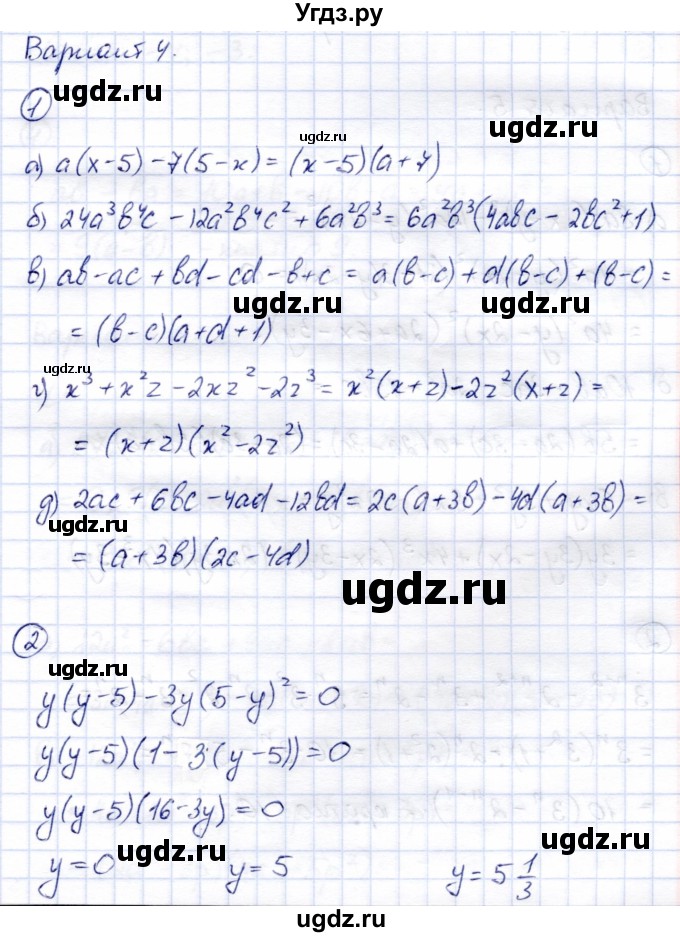 Угдз.ру
Вариант 4.
ugdz.ru
1
ugdz.ru
а) a(x-5) - 7(5-x) = (x-5)(a+7)
б) 24a³b⁴c - 12a²b⁴c² + 6a²b³ = 6a²b³(4abc - 2bc² + 1)
в) ab - ac + bd - cd - b + c = a(b-c) + d(b-c) + (b-c) =
ugdz.ru
= (b-c)(a+d+1)
ugdz.ru
г) x³ + x²z - 2xz² - 2z³ = x²(x+z) - 2z²(x+z) =
= (x+z)(x² - 2z²)
д) 2ac + 6bc - 4ad - 12bd = 2c(a+3b) - 4d(a+3b) =
ugdz.ru
= (a+3b)(2c-4d)
ugdz.ru
2
ugdz.ru
y(y-5) - 3y(5-y)² = 0
y(y-5)(1 - 3·(y-5)) = 0
y(y-5)(16-3y) = 0
ugdz.ru
ugdz.ru
y = 0 y = 5 y = 5 1/3
ugdz.ru